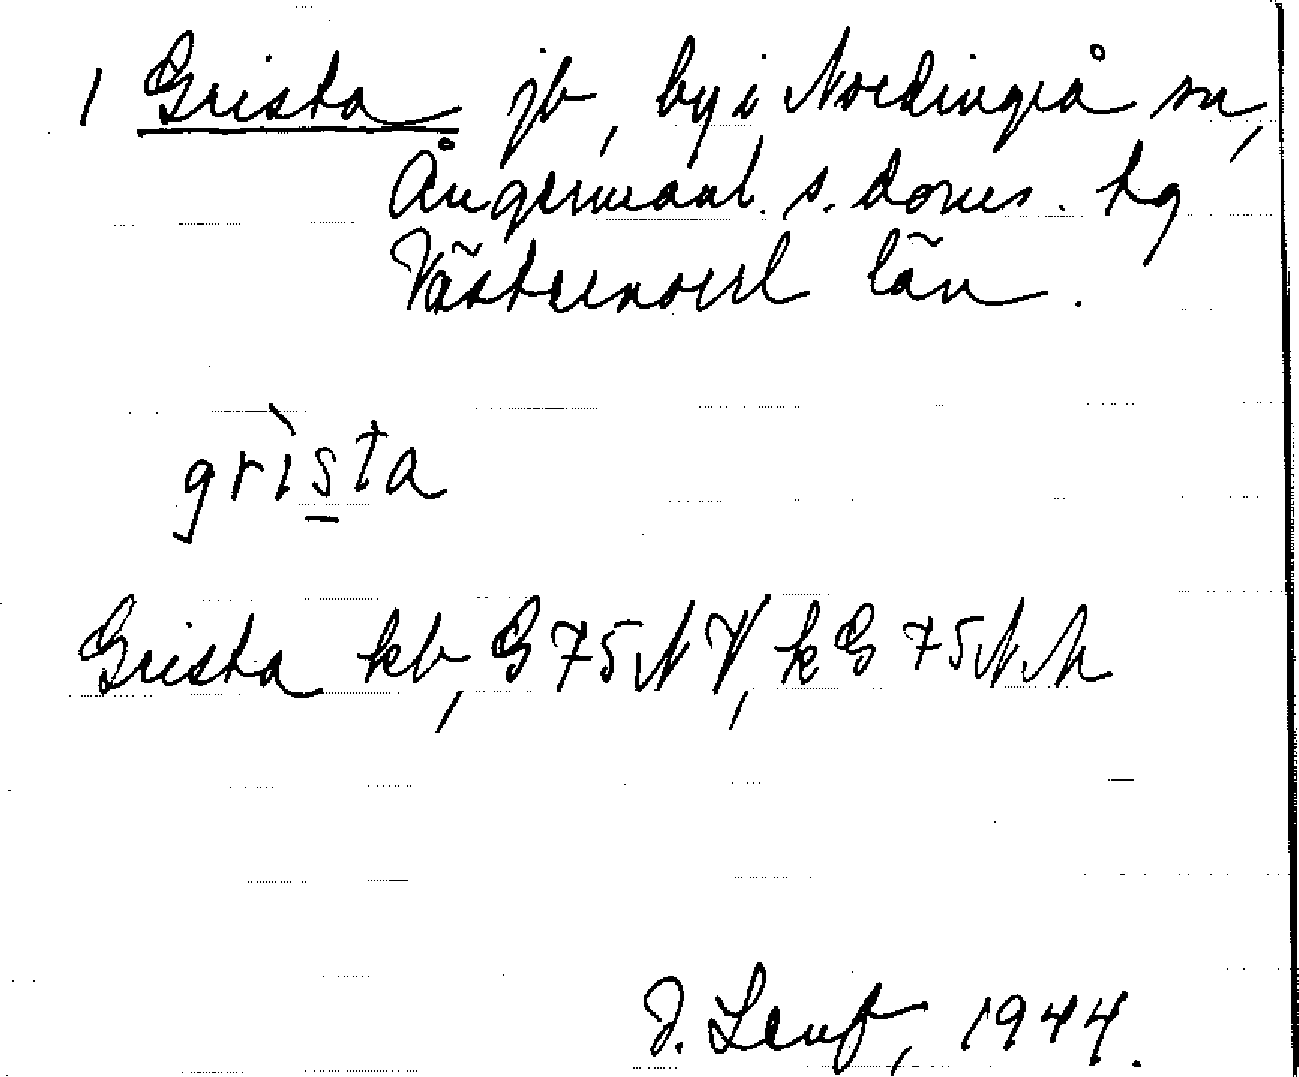 1 Grista jb, by i Nordingrå sn,
Ångermanl. s. doms. tg
Västernorrl län.
grìs̲ta
Grista kb, G 75 NV, kG 75 NN
J. Lenf, 1944.